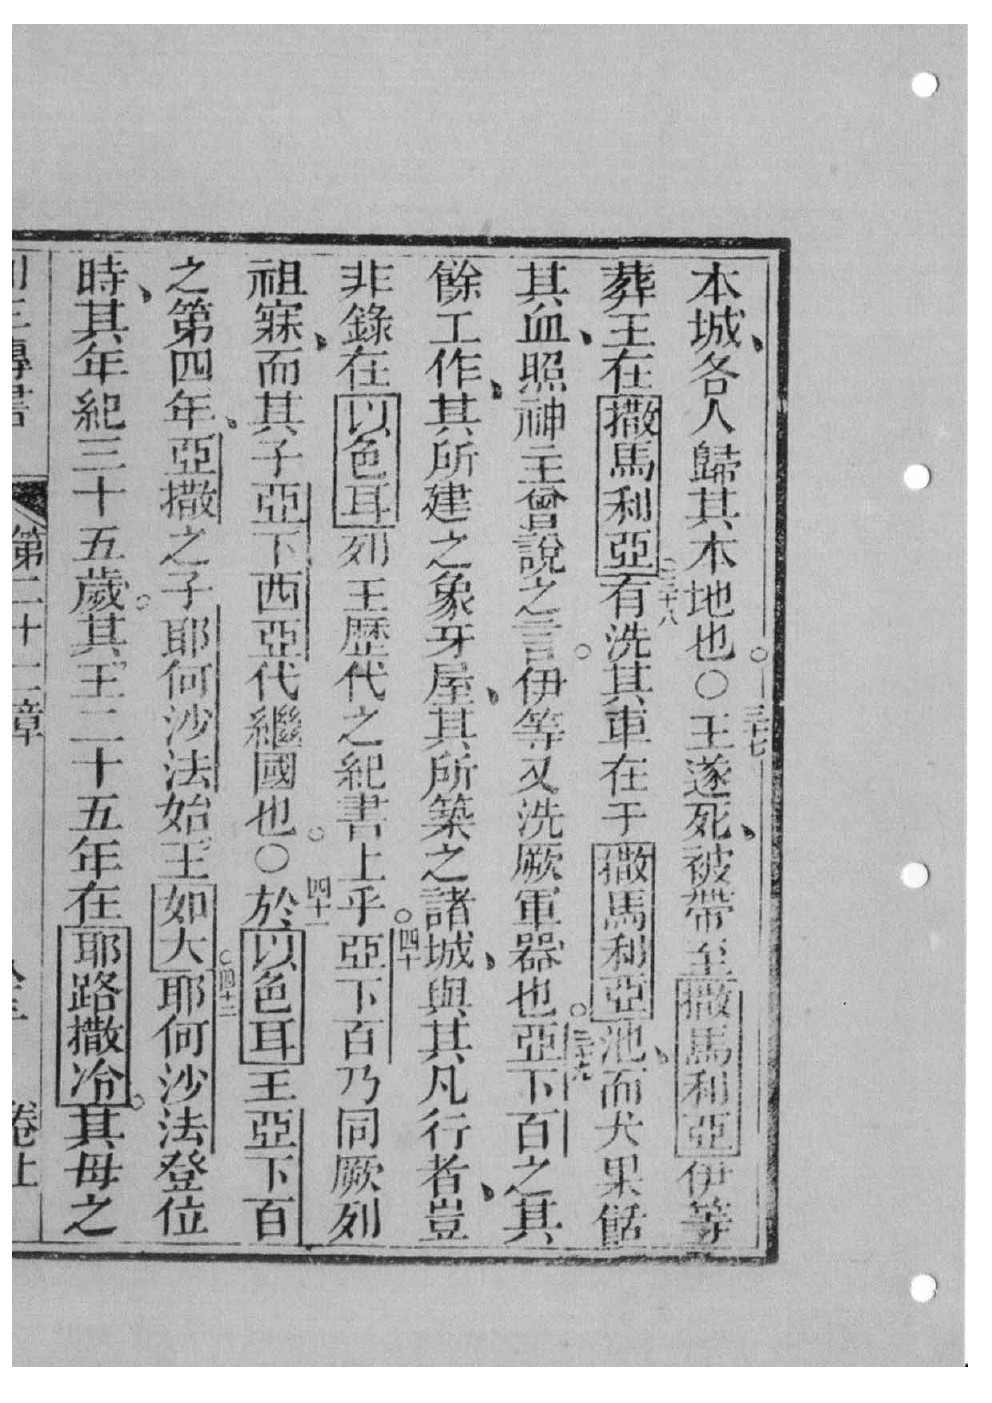 本城、各人歸其本地也。○三十七王遂死、被帶至撒馬利亞伊等
葬王在撒馬利亞。三十八有洗其車在于撒馬利亞池、而犬果餂
其血、照神主曾說之言。伊等又洗厥軍器也。三十九亞下百之其
餘工作、其所建之象牙屋、其所築之諸城、與其凡行者、豈
非錄在以色耳列王歷代之紀書上乎。四十亞下百乃同厥列
祖寐、而其子亞下西亞代繼國也。○四十一於以色耳王亞下百
之第四年、亞撒之子耶何沙法始王如大。四十二耶何沙法登位
時、其年紀三十五歲。其王二十五年在耶路撒冷。其母之
第二十二章 卷上